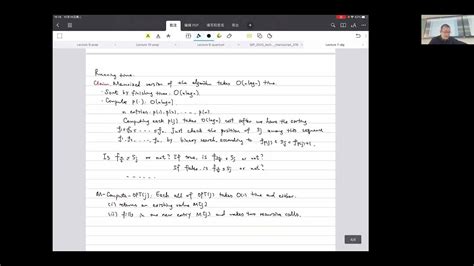 Lecture 9 prep
Lecture 10 prep
Lecture 7 alg
Running time.
Claim. Memoized version of the algorithm takes O(n log n) time.
· Sort by finishing time: O(n log n).
· Compute p(·): O(n log n).
n entries: p(1), p(2), ..., p(n).
Computing each p(j) takes O(log n) cost after we have the sorting
f1 ≤ f2 ≤ ... ≤ fn. Just check the position of sj among this sequence
f1, f2, ..., fn, by binary search, according to fp(j) ≤ sj < fp(j)+1.
Is f n/2 ≤ sj or not? If true, is ≤ sj or not?
If false, is ≤ sj or not?
......
M-Compute-OPT(j): Each call of OPT(j) takes O(1) time and either
(i) returns an existing value M[j]
(ii) fills in one new entry M[j] and makes two recursive calls.